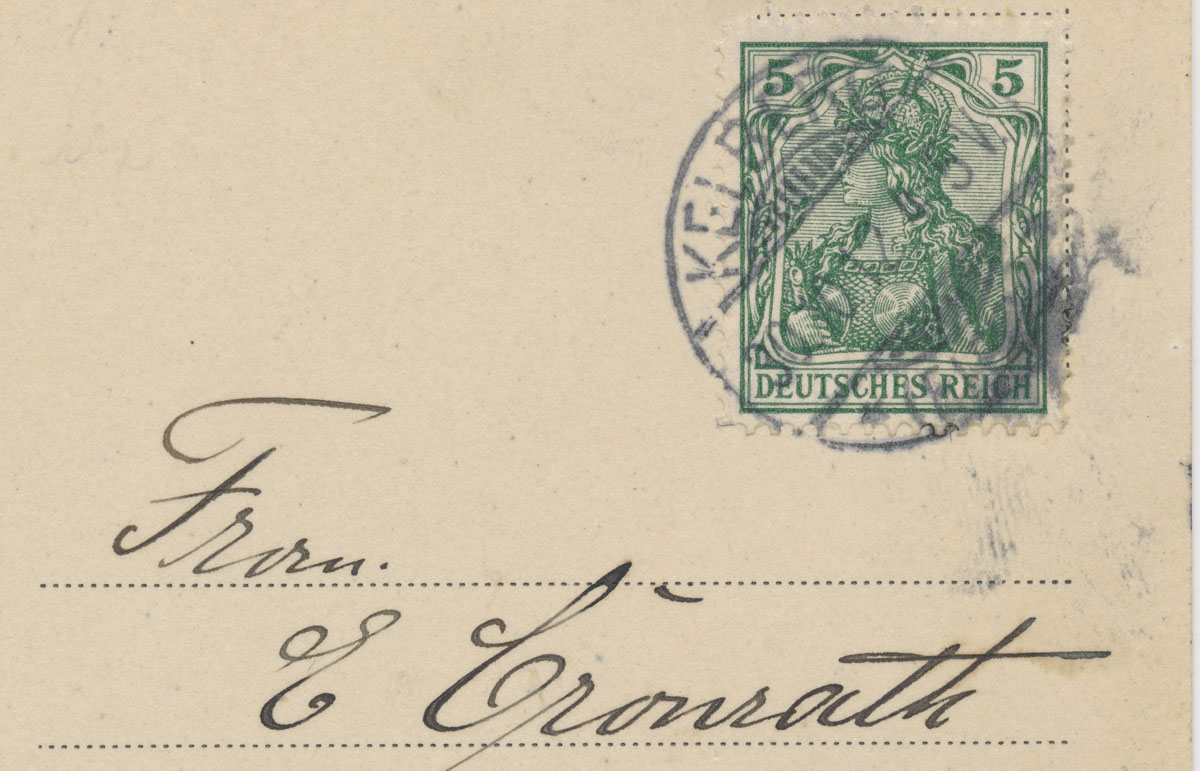 5 5
DEUTSCHES REICH
Frau.
E Cronrath